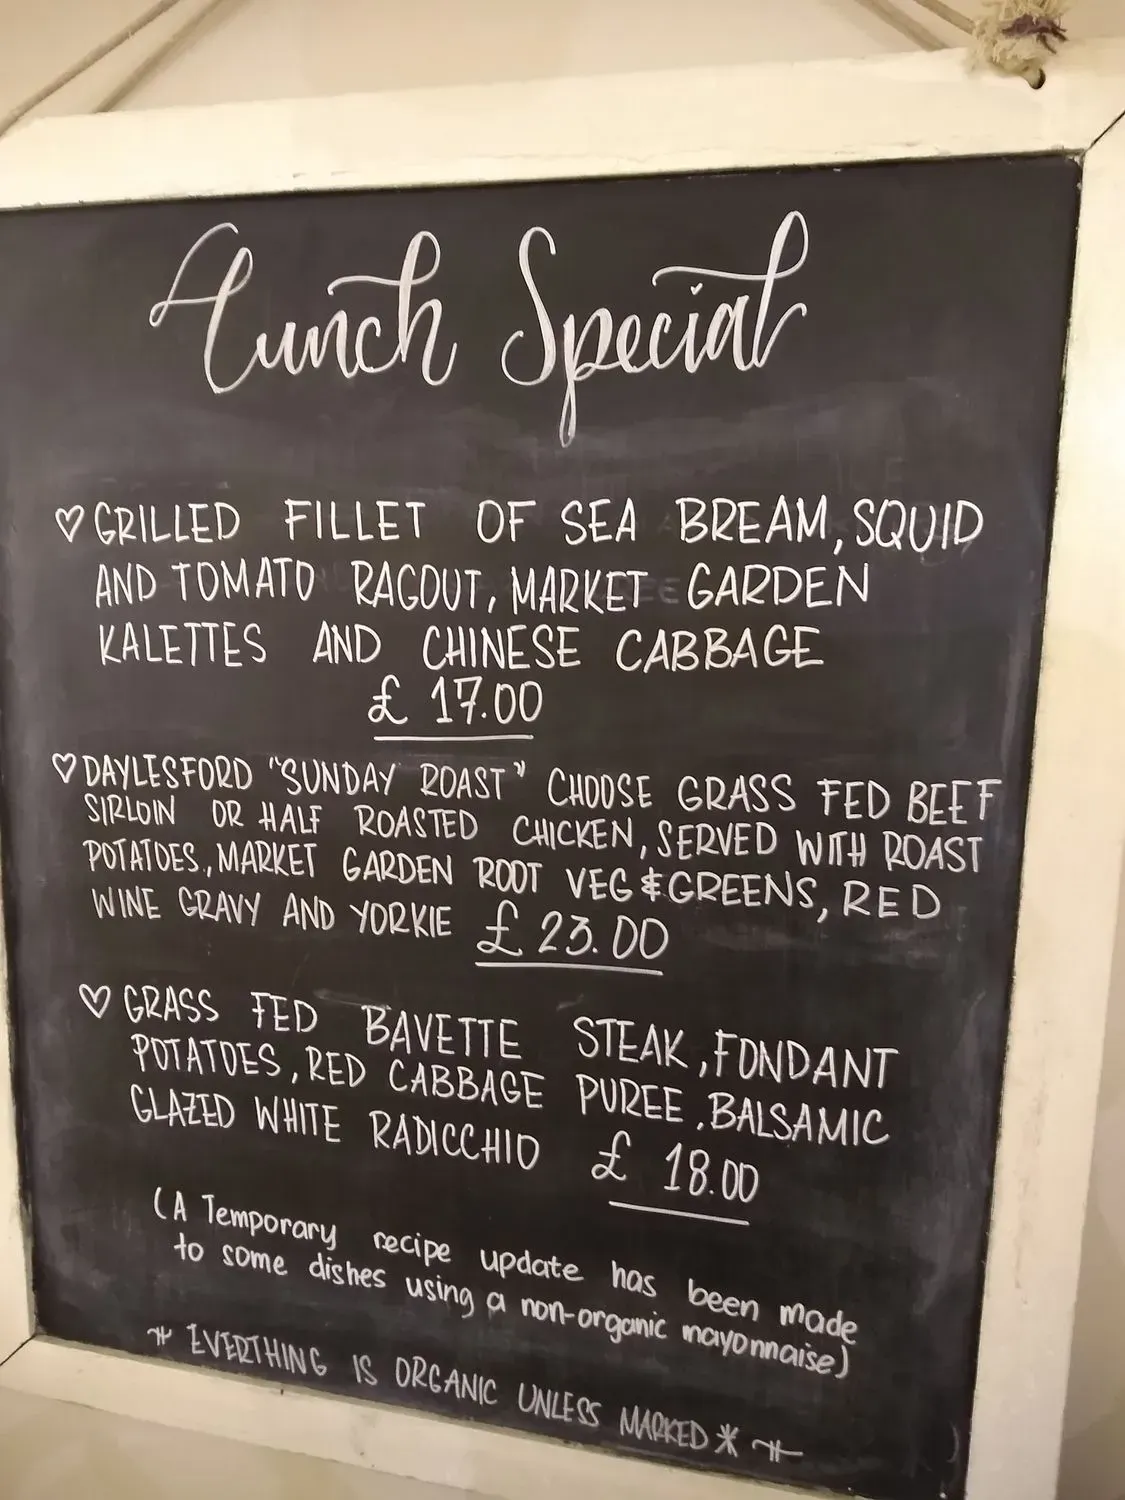 Lunch Special
♡ GRILLED FILLET OF SEA BREAM, SQUID
AND TOMATO RAGOUT, MARKET GARDEN
KALETTES AND CHINESE CABBAGE
£ 17.00
♡ DAYLESFORD "SUNDAY ROAST" CHOOSE GRASS FED BEEF
SIRLOIN OR HALF ROASTED CHICKEN, SERVED WITH ROAST
POTATOES, MARKET GARDEN ROOT VEG & GREENS, RED
WINE GRAVY AND YORKIE £ 23.00
♡ GRASS FED BAVETTE STEAK, FONDANT
POTATOES, RED CABBAGE PUREE, BALSAMIC
GLAZED WHITE RADICCHIO £ 18.00
(A Temporary recipe update has been made
to some dishes using a non-organic mayonnaise)
EVERTHING IS ORGANIC UNLESS MARKED *